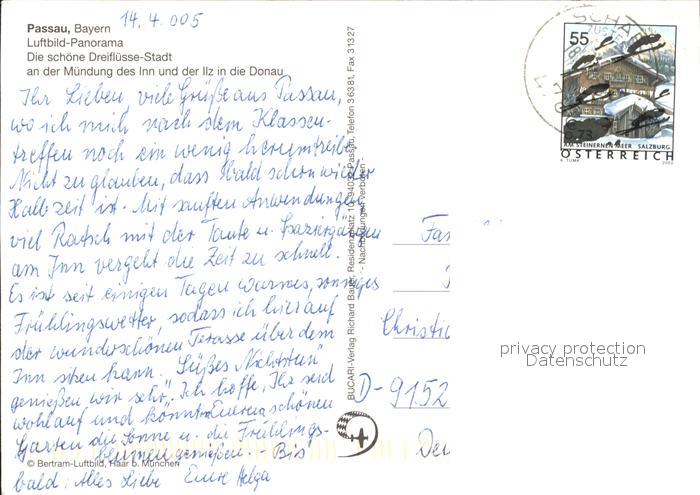 14.4.005
Passau, Bayern
Luftbild-Panorama
Die schöne Dreiflüsse-Stadt
an der Mündung des Inn und der Ilz in die Donau
Ihr Lieben, viele Grüße aus Passau,
wo ich mich nach dem Klassen-
treffen noch ein wenig herumtreibe.
Nicht zu glauben, dass bald schon wieder
Halbzeit ist. Mit sanften Anwendungen,
viel Ratsch mit der Tante u. Spaziergängen
am Inn vergeht die Zeit zu schnell.
Es ist seit einigen Tagen warmes, sonniges
Frühlingswetter, sodass ich hier auf
der wunderschönen Terasse über dem
Inn sitzen kann. "Süßes Nichtstun"
genießen wir sehr. Ich hoffe, Ihr seid
wohlauf und könnt in Eurem schönen
Garten die Sonne u. die Frühlings-
blumen genießen – Bis
bald: Alles Liebe Eure Helga
© Bertram-Luftbild, Haar b. München
BUCARI-Verlag Richard Bauer, Residenzplatz 10, 94032 Passau, Telefon 36381, Fax 31327
- Nachbildungen verboten -
55
AM STEINERNEN MEER SALZBURG
ÖSTERREICH
2002
Fas
Christi
D-9152
privacy protection
Datenschutz